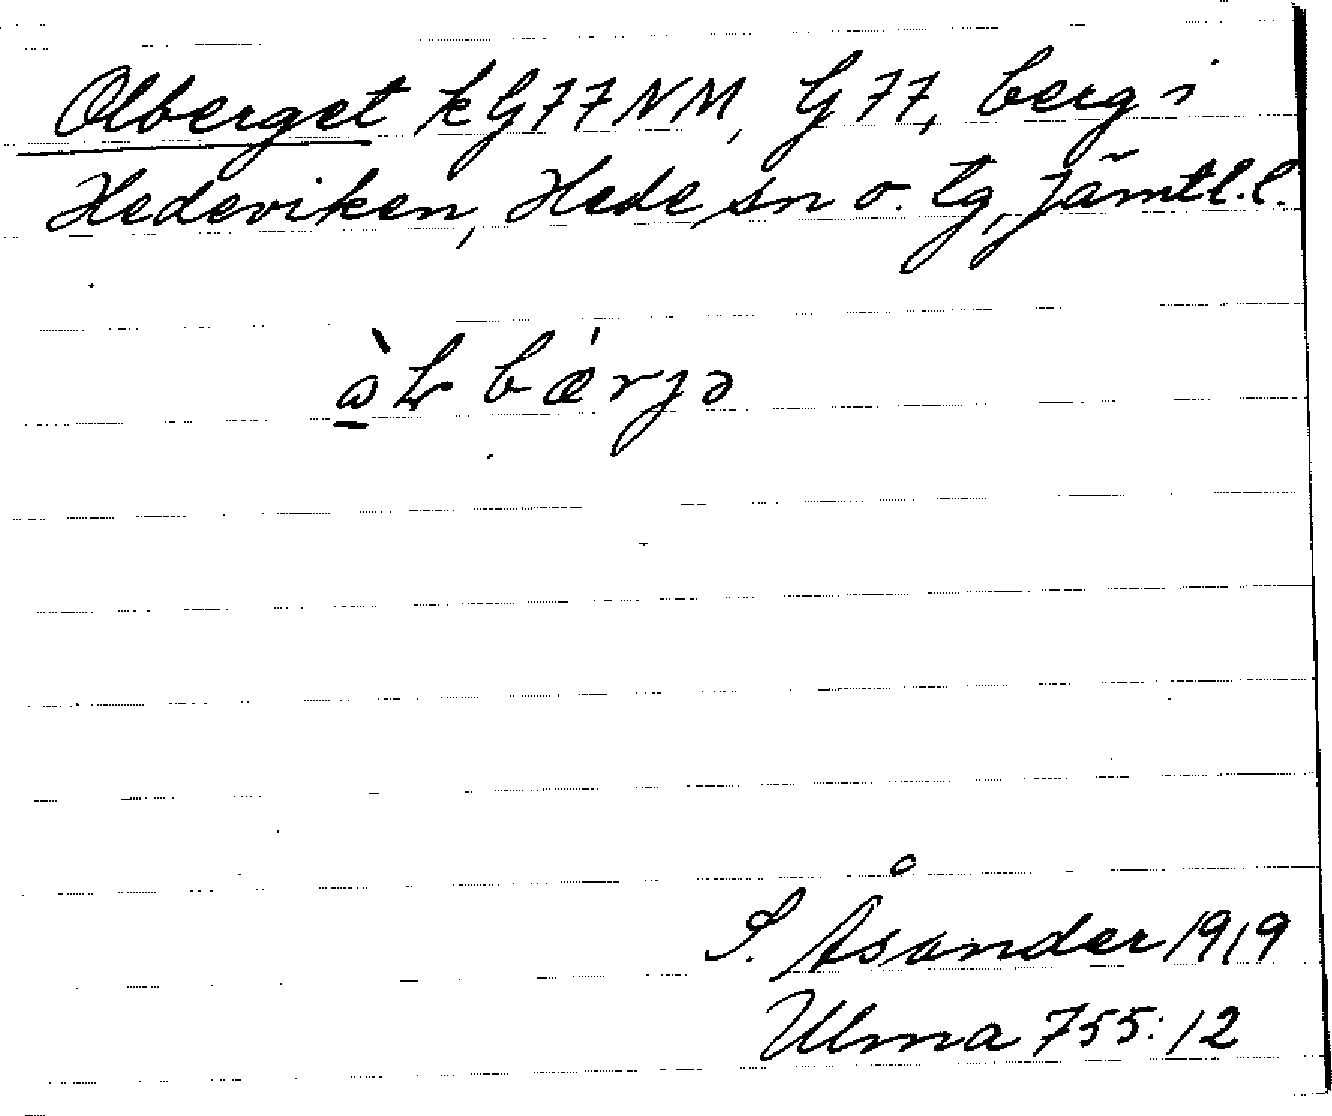 Olberget k G77NM, G 77, berg i
Hedeviken, Hede sn o. tg, Jämtl. l.
bærjə
S. Åsander 1919
Ulma 755:12